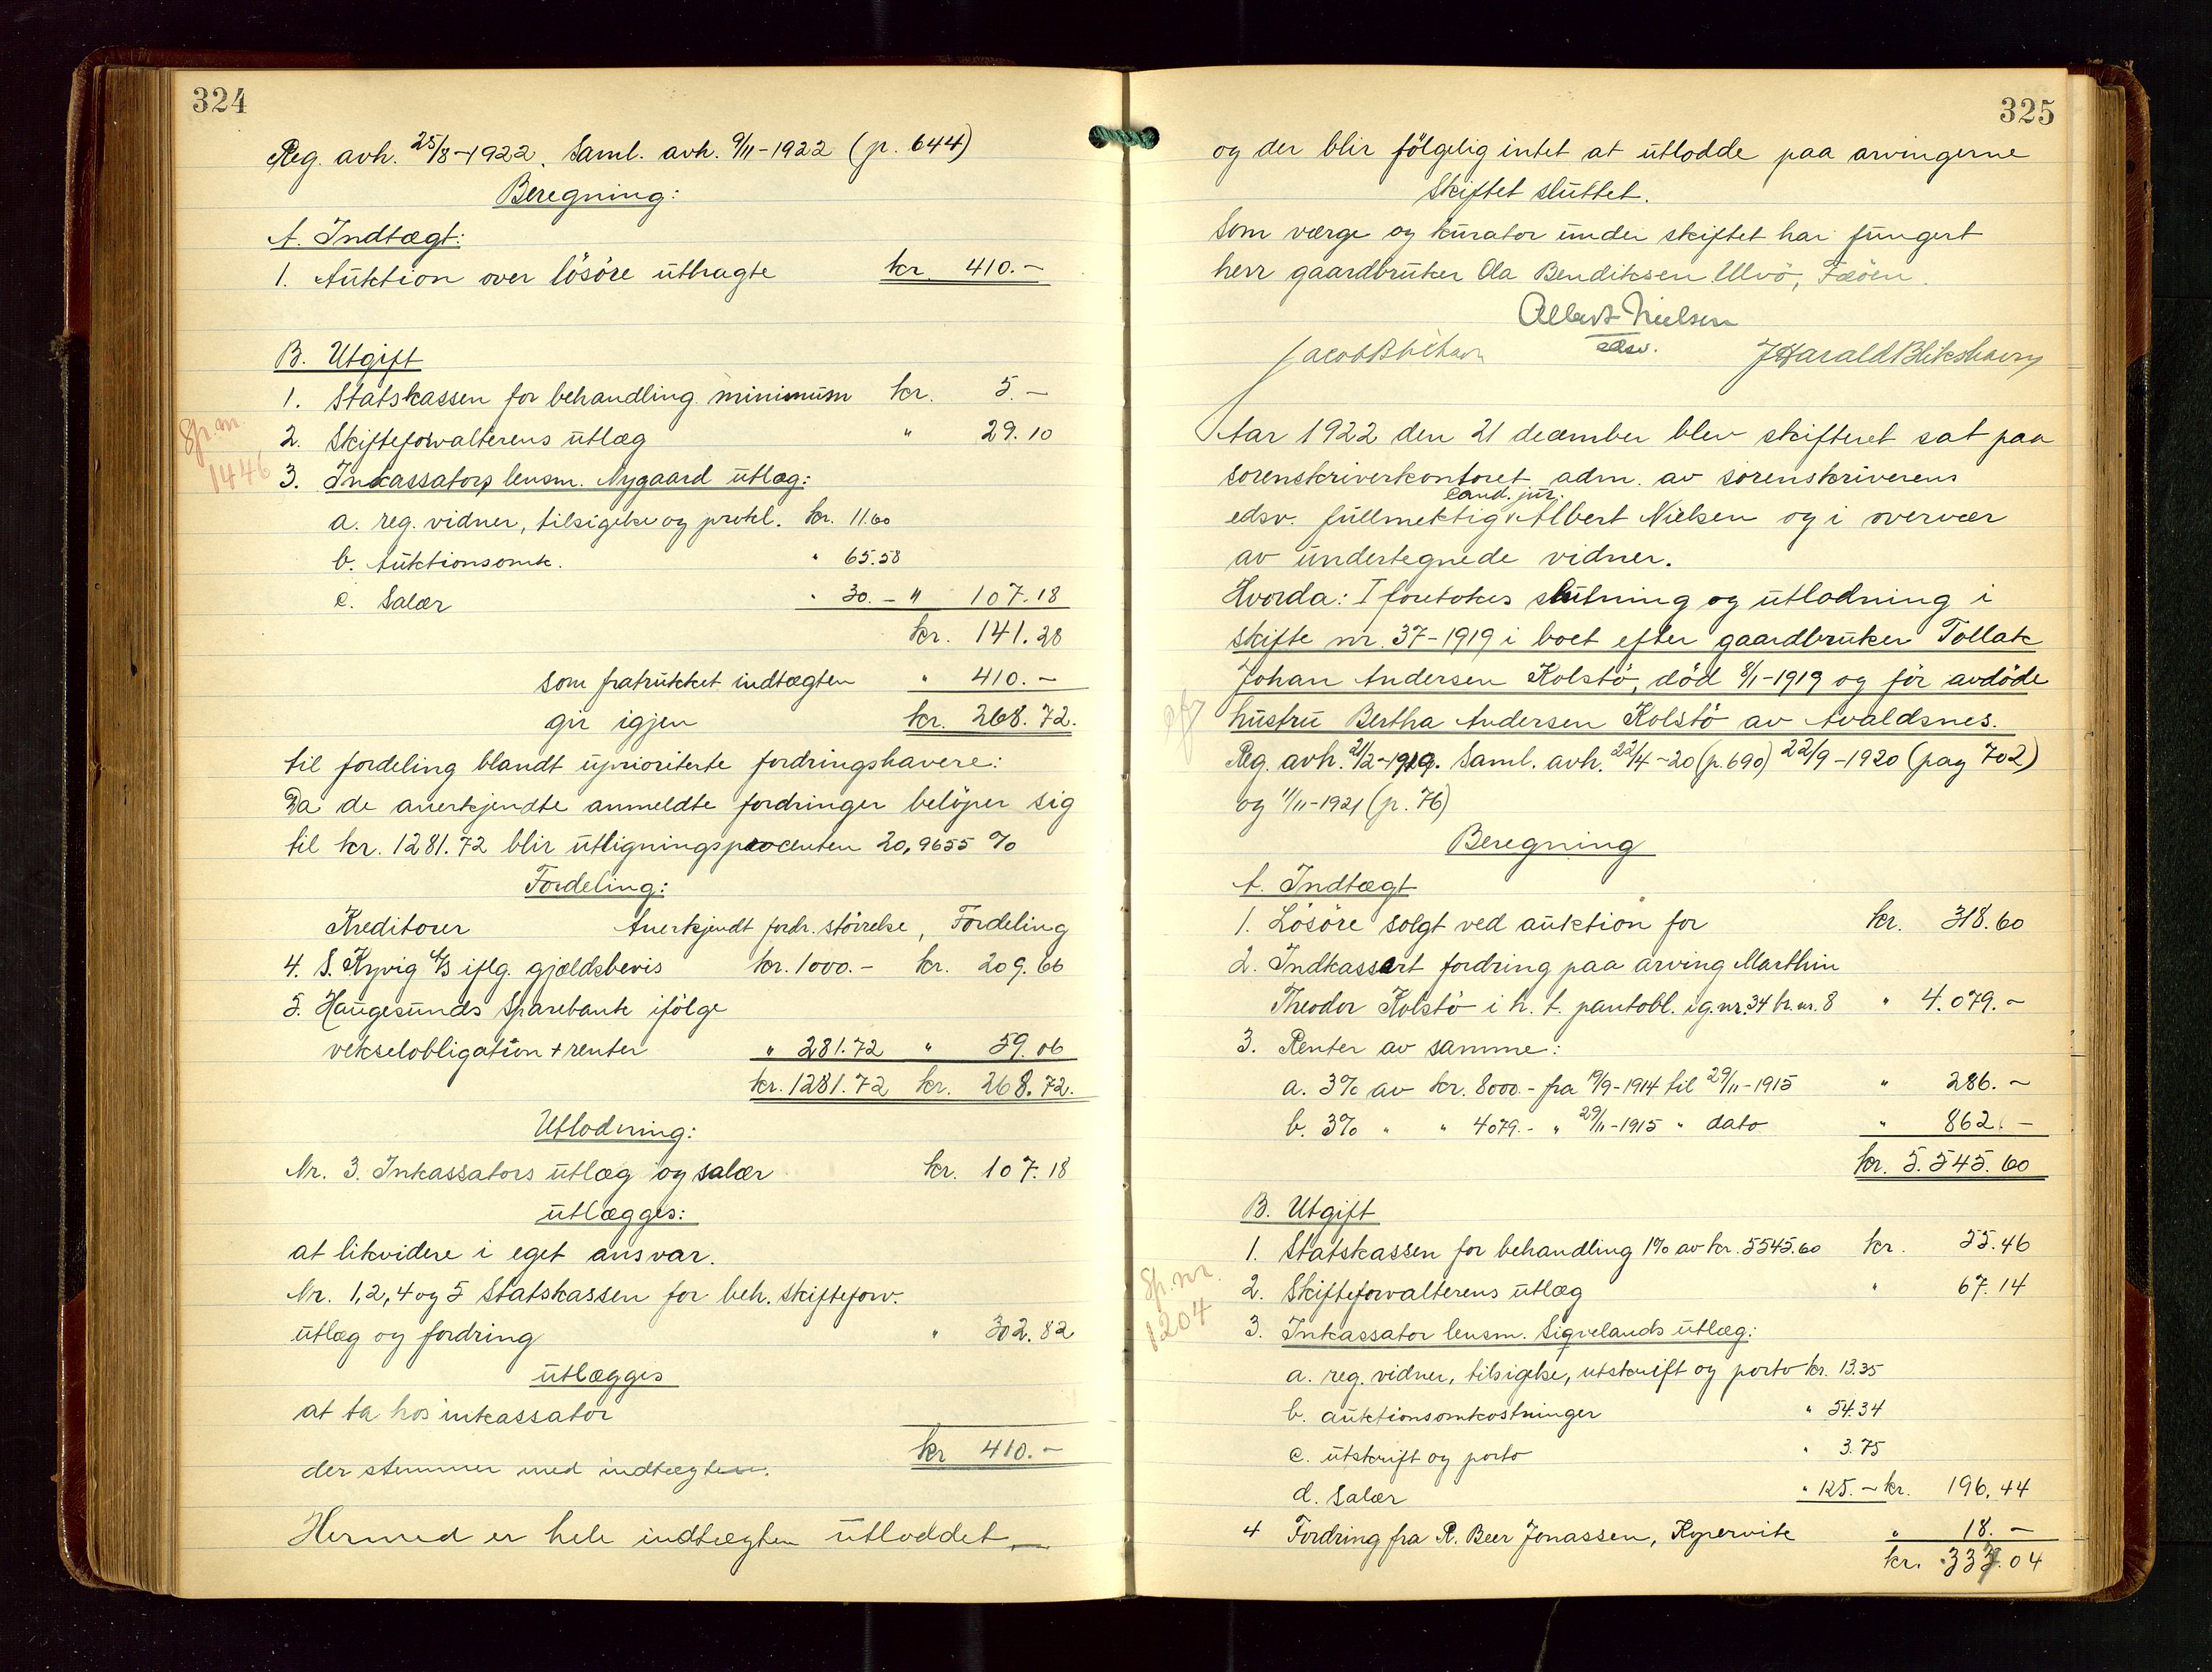 324
Reg. avh. 25/8-1922. Saml. avh. 9/11-1922 (p. 644)
Beregning:
A. Indtægt:
1. Auktion over lösöre utbragte kr. 410.-
B. Utgift
1. Statskassen for behandling minimum kr. 5.-
Sp. nr. 1446
2. Skifteforvalterens utlæg " 29.10
3. Inkassators lensm. Nygaard utlæg:
a. reg. vidner, tilsigelse og protkl. kr. 11.60
b. Auktionsomk. " 65.58
c. Salær " 30.- " 107.18
kr. 141.28
som fratrukket indtægten " 410.-
gir igjen kr. 268.72.
til fordeling blandt uprioriterte fordringshavere:
Da de anerkjendte anmeldte fordringer belöper sig
til kr. 1281.72 blir utligningsprocenten 20,9655 %
Fordeling:
Kreditorer Anerkjendt fordr. störrelse, Fordeling
4. S. Kyvig A/S iflg. gjældsbevis kr. 1000.- kr. 209.66
5. Haugesunds Sparebank ifölge
vekselobligation + renter " 281.72 " 59.06
kr. 1281.72 kr. 268.72.
Utlodning:
Nr. 3. Inkassators utlæg og salær kr. 107.18
utlægges:
at likvidere i eget ansvar.
Nr. 1, 2, 4 og 5 Statskassen for beh. skifteforv.
utlæg og fordring " 302.82
utlægges
at ta hos inkassator
kr 410.-
der stemmer med indtægten.
Hermed er hele indtægten utloddet
325
og der blir fölgelig intet at utlodde paa arvingerne
Skiftet sluttet.
Som værge og kurator under skiftet har fungert
herr gaardbruker Ola Bendiksen Ulvö, Fæöen.
Albert Nielsen
edsv.
J Harald Blikshavn
Aar 1922 den 21 december blev skifteret sat paa
sorenskriverkontoret adm. av sorenskriverens
edsv. fullmektig cand. jur. Albert Nielsen og i overvær
av undertegnede vidner.
Hvorda: I foretokes slutning og utlodning i
skifte nr. 37-1919 i boet efter gaardbruker Tollak
Johan Andersen Kolstö, död 8/1-1919 og för avdöde
hustru Bertha Andersen Kolstö av Avaldsnes.
Reg. avh. 21/2-1919. Saml. avh. 22/4-20 (p. 690) 22/9-1920 (pag 702)
og 11/11-1921 (p. 76)
Beregning
A. Indtægt
1. Lösöre solgt ved auktion for kr. 318.60
2. Indkassert fordring paa arving Marthin
Theodor Kolstö i h. t. pantobl. i g. nr. 34 br. nr. 8 " 4.079.-
3. Renter av samme:
a. 3% av kr. 8000.- fra 19/9-1914 til 29/11-1915 " 286.-
b. 3% " " 4079.- " 29/11-1915 " dato " 862.-
kr. 5.545.60
B. Utgift
1. Statskassen for behandling 1% av kr. 5545.60 kr. 55.46
Sp. nr. 1204
2. Skifteforvalterens utlæg " 67.14
3. Inkassator lensm. Sigvelands utlæg:
a. reg. vidner, tilsigelse, utskrift og porto kr. 13.35
b. auktionsomkostninger " 54.34
c. utskrift og porto " 3.75
d. Salær " 125.- kr. 196.44
4 Fordring fra R. Beer Jonassen, Kopervik " 18.-
kr. 337.04